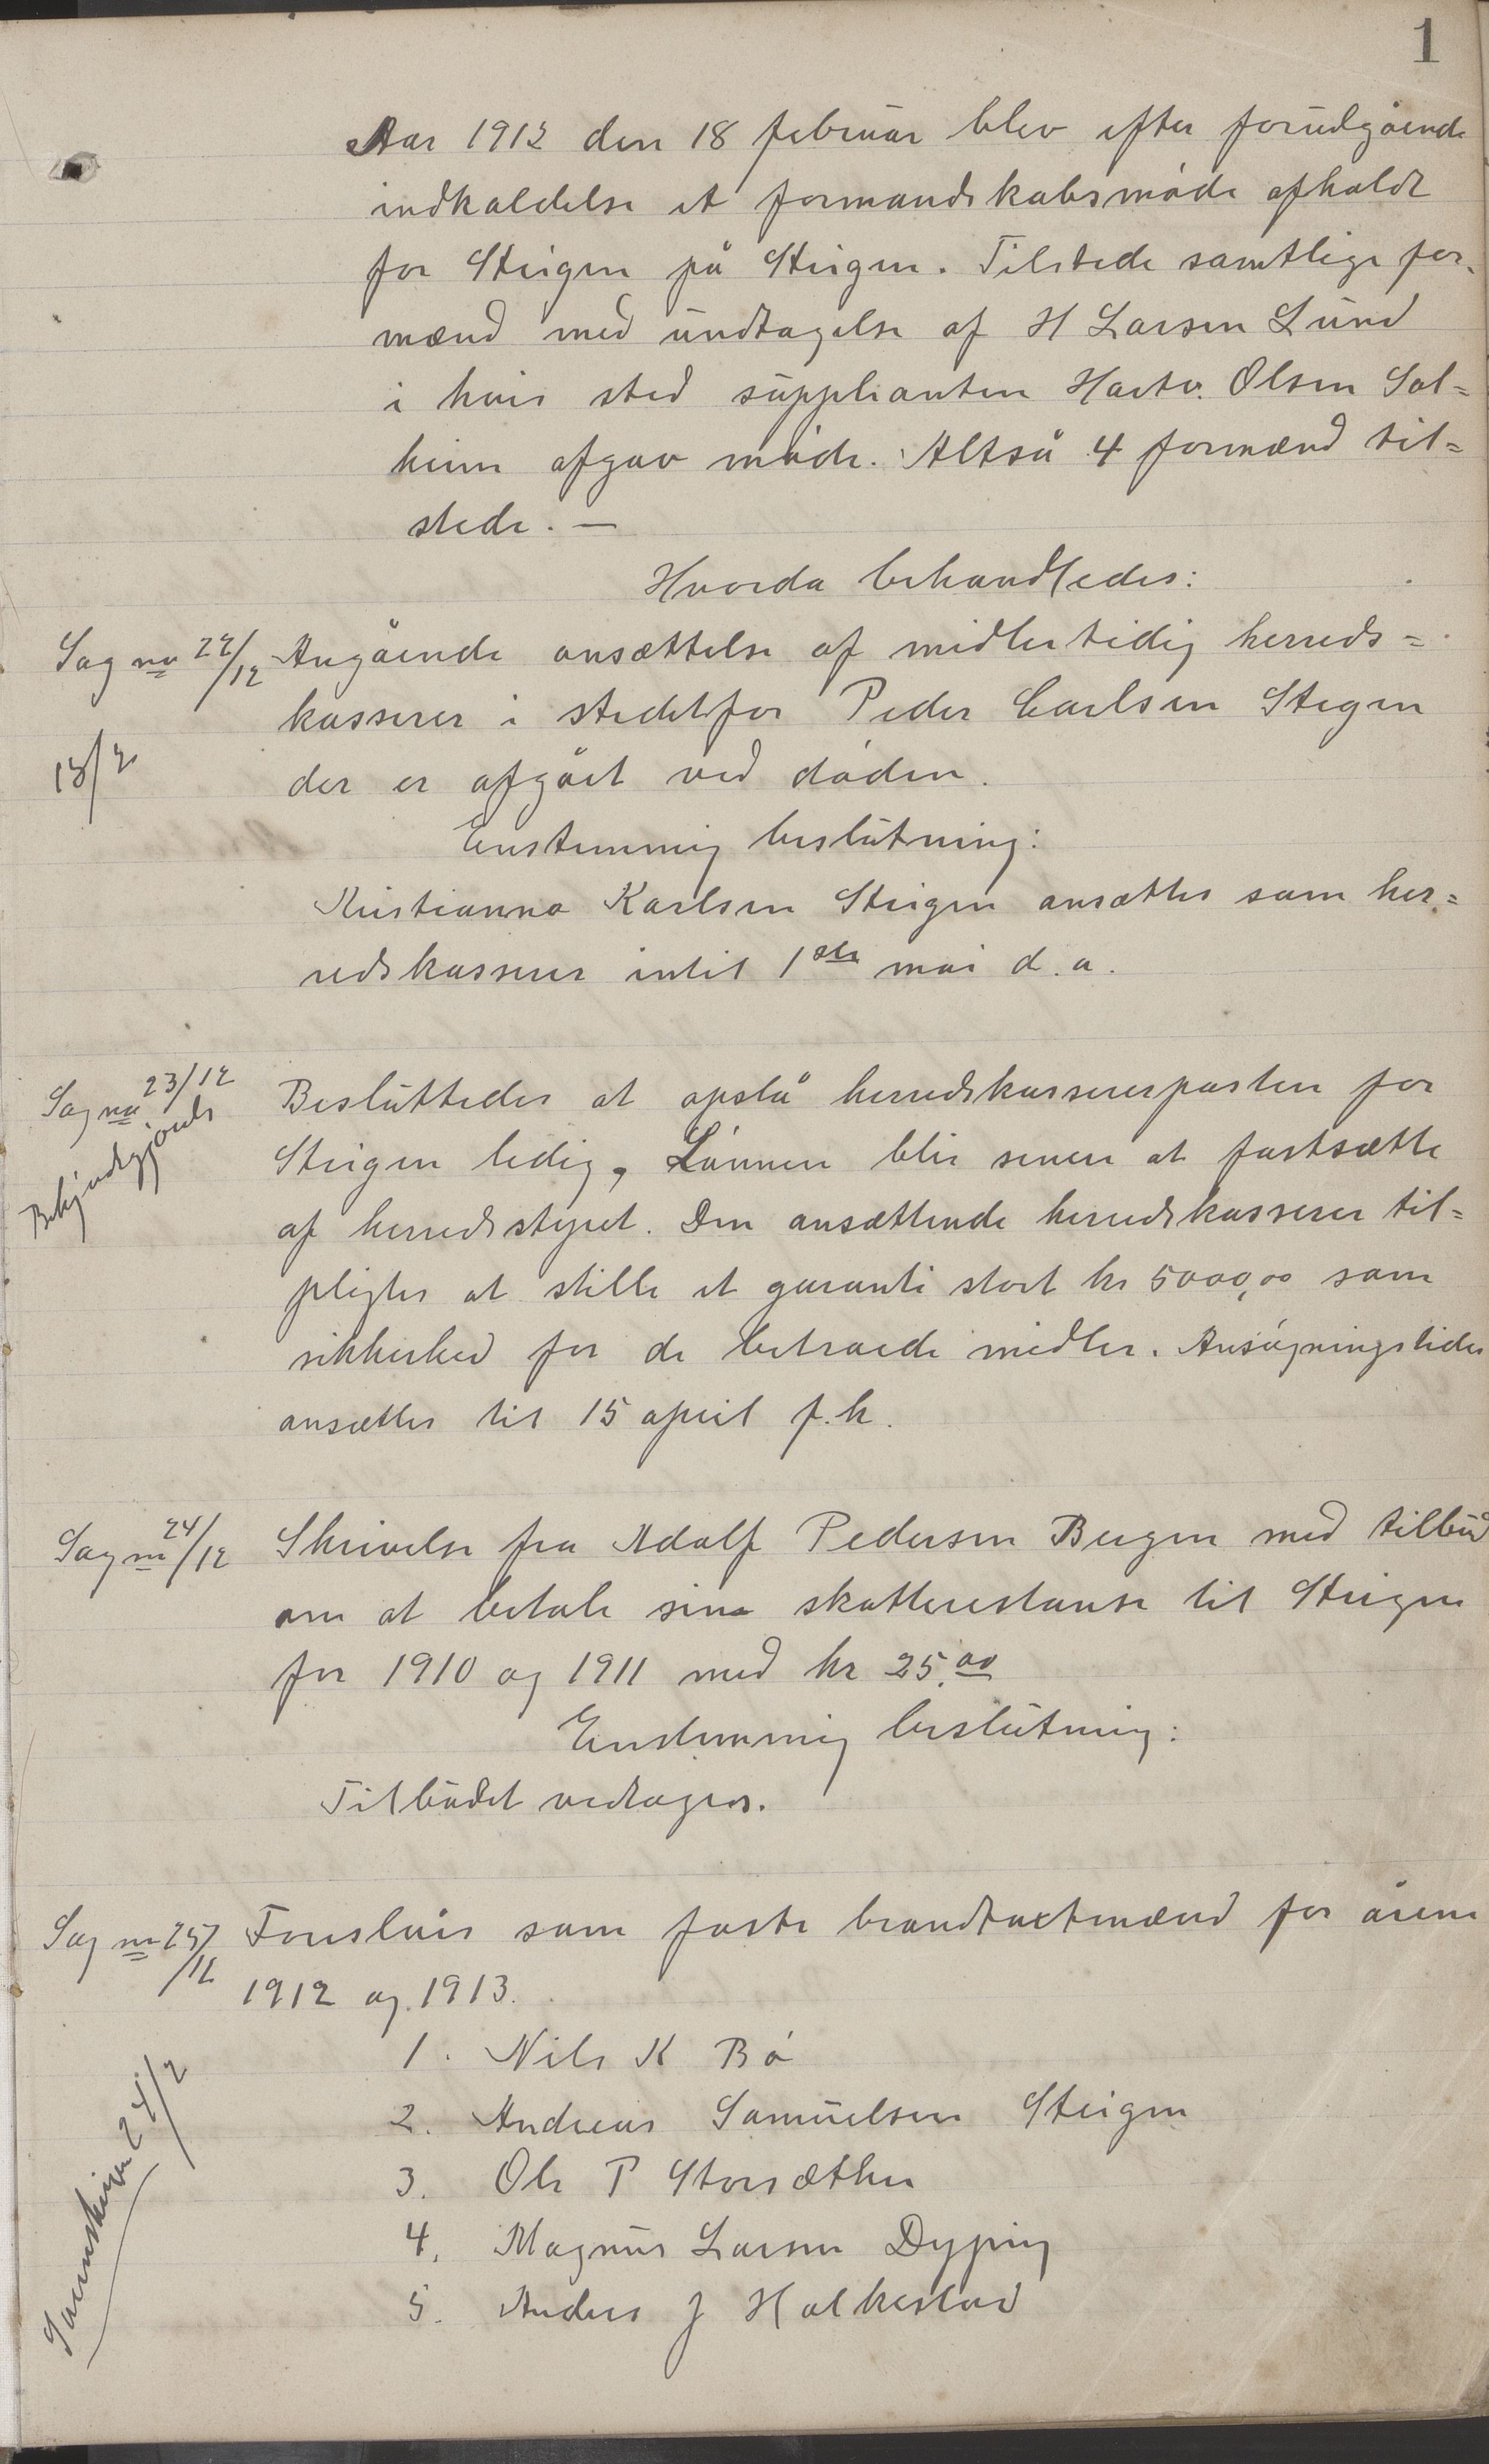 1
Aar 1912 den 18 februar blev efter forudgående
indkaldelse et formandskabsmöde afholdt
for Steigen på Steigen. Tilstede samtlige for-
mænd med undtagelse af H Larsen Lund
i hvis sted supplianten Hartv. Olsen Sol=
heim afgav möde. Altså 4 formænd til=
stede. —
Hvorda behandledes:
Sag no 22/12 Angående ansættelse af midlertidig herreds=
kasserer i stedetfor Peder Carlsen Stegen
13/2
der er afgået ved döden.
Enstemmig beslutning:
Kristianna Karlsen Steigen ansættes som her=
redskasserer intil 1ste mai d. a.
Sag no 23/12 Besluttedes at opslå herredskassererposten for
Bekjendtgjordt
Steigen ledig, Lönnen blir senere at fastsætte
af herredsstyret. Den ansættende herredskasserer til=
pligtes at stille et garanti stort kr 5000,00 som
sikkerhed for de betroede midler. Ansögningstiden
ansættes til 15 april f. k.
Sag no 24/12 Skrivelse fra Adolf Pedersen Bergen med tilbud
om at betale sine skatterestanse til Steigen
for 1910 og 1911 med kr 25.00
Enstemmig beslutning:
Tilbudet vedtages.
Sag no 25/12 Foreslåes som faste brandtaxtmænd for årene
1912 og 1913.
1. Nils K Bö
2. Andreas Samuelsen Steigen
3. Ole P Storsæther
4. Magnus Larsen Dyping
5. Anders J Holkestad
24/2